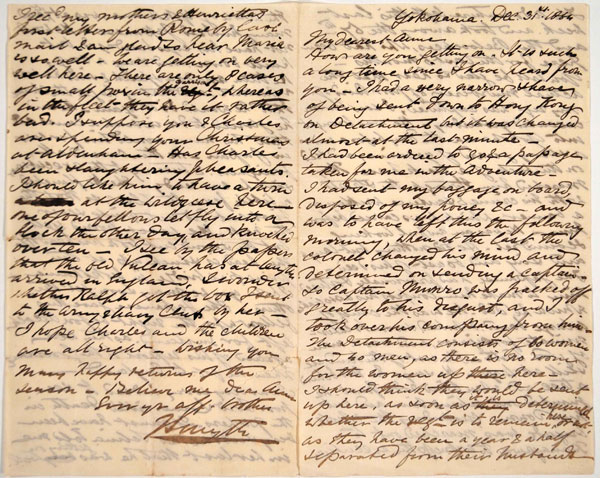 Yokohama. Dec. 31st 1864
My dearest Anne
How are you getting on. It is such
a long time since I have heard from
you - I had a very narrow shave
of being sent down to Hong Kong
on Detachment but it was changed
almost at the last minute -
I had been ordered to & a passage
taken for me in the Adventure -
I had sent my baggage on board,
disposed of my pony, &c - and
was to have left this the following
morning, when at the last the
colonel changed his mind and
determined on sending a captain -
So Captain Munro was packed off
greatly to his disgust, and I
took over his company from him -
The detachment consists of 60 women
and 40 men, as there is no room
for the women up there here -
I should think they would be sent
up here, as soon as it is determined
whether the Regt. is to remain here or not -
as they have been a year & a half
separated from their husbands
I got my mother's & Henrietta's
first letter from Rome by last
mail I am glad to hear Maria
is so well - we are getting on very
well here - There are only 2 cases
of small pox in the Regt. whereas
in the fleet they have it rather
bad. I suppose you & Charles
are spending your Christmas
at Has Charles
been slaughtering pheasants.
I should like him to have a turn
at the wild geese here -
one of our fellows let fly into a
flock the other day and knocked
over ten - I see by the papers
that the old Vulcan has at length
arrived in England, I wonder
whether Ralph got the box I sent
to the Army & Navy Club by her -
I hope Charles and the children
are all right - wishing you
many happy returns of the
season - Believe me dear Anne
Ever yr. aff. brother
Smyth